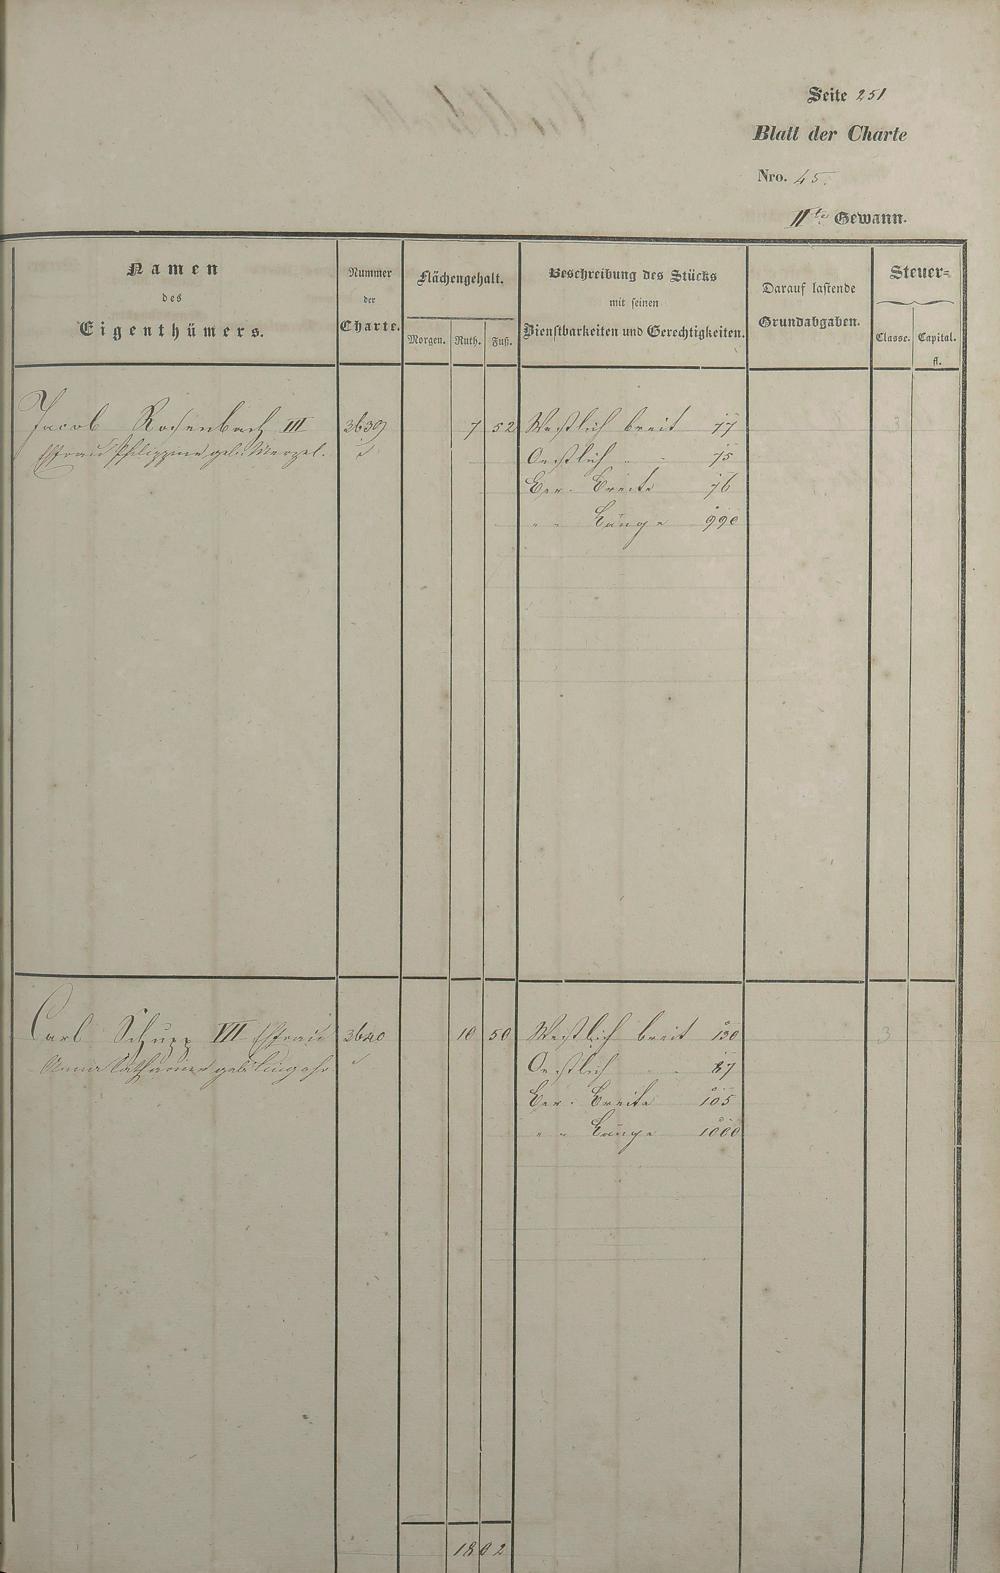 Seite 251
Blatt der Charte
Nro. 45.
IIte Gewann.
Namen
des
Eigenthümers.
Nummer
der
Charte.
Flächengehalt.
Morgen. Ruth. Fuß.
Beschreibung des Stücks
mit seinen
Dienstbarkeiten und Gerechtigkeiten.
Darauf lastende
Grundabgaben.
Steuer=
Classe. Capital.
fl.
Jacob Rosenbach III 3639 7 52 Westlich breit 77 3
Ehfrau Philippine geb. Merzel. Oestlich " " 75
Ger. Breite 76
" " Länge 990
Carl Schupp VII Ehfrau 3640 10 50 Westlich breit 130 3
Anna Catharine geb. Oestlich " " 87
Ger. Breite 105
" " Länge 1000
18 02